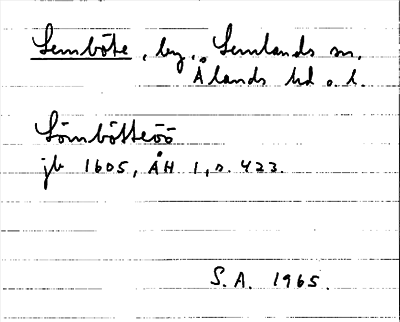 Lemböte, by, Lemlands sn,
Ålands hd o. l.
Lömbötteöö
jb 1605, ÅH 1, s. 423.
S.A. 1965.